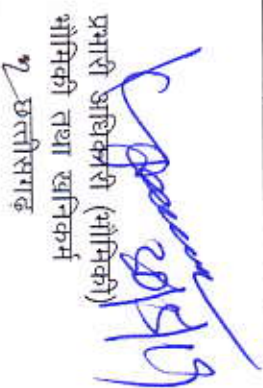 प्रभारी अधिकारी (भौमिकी)
भौमिकी तथा खनिकर्म
छत्तीसगढ़